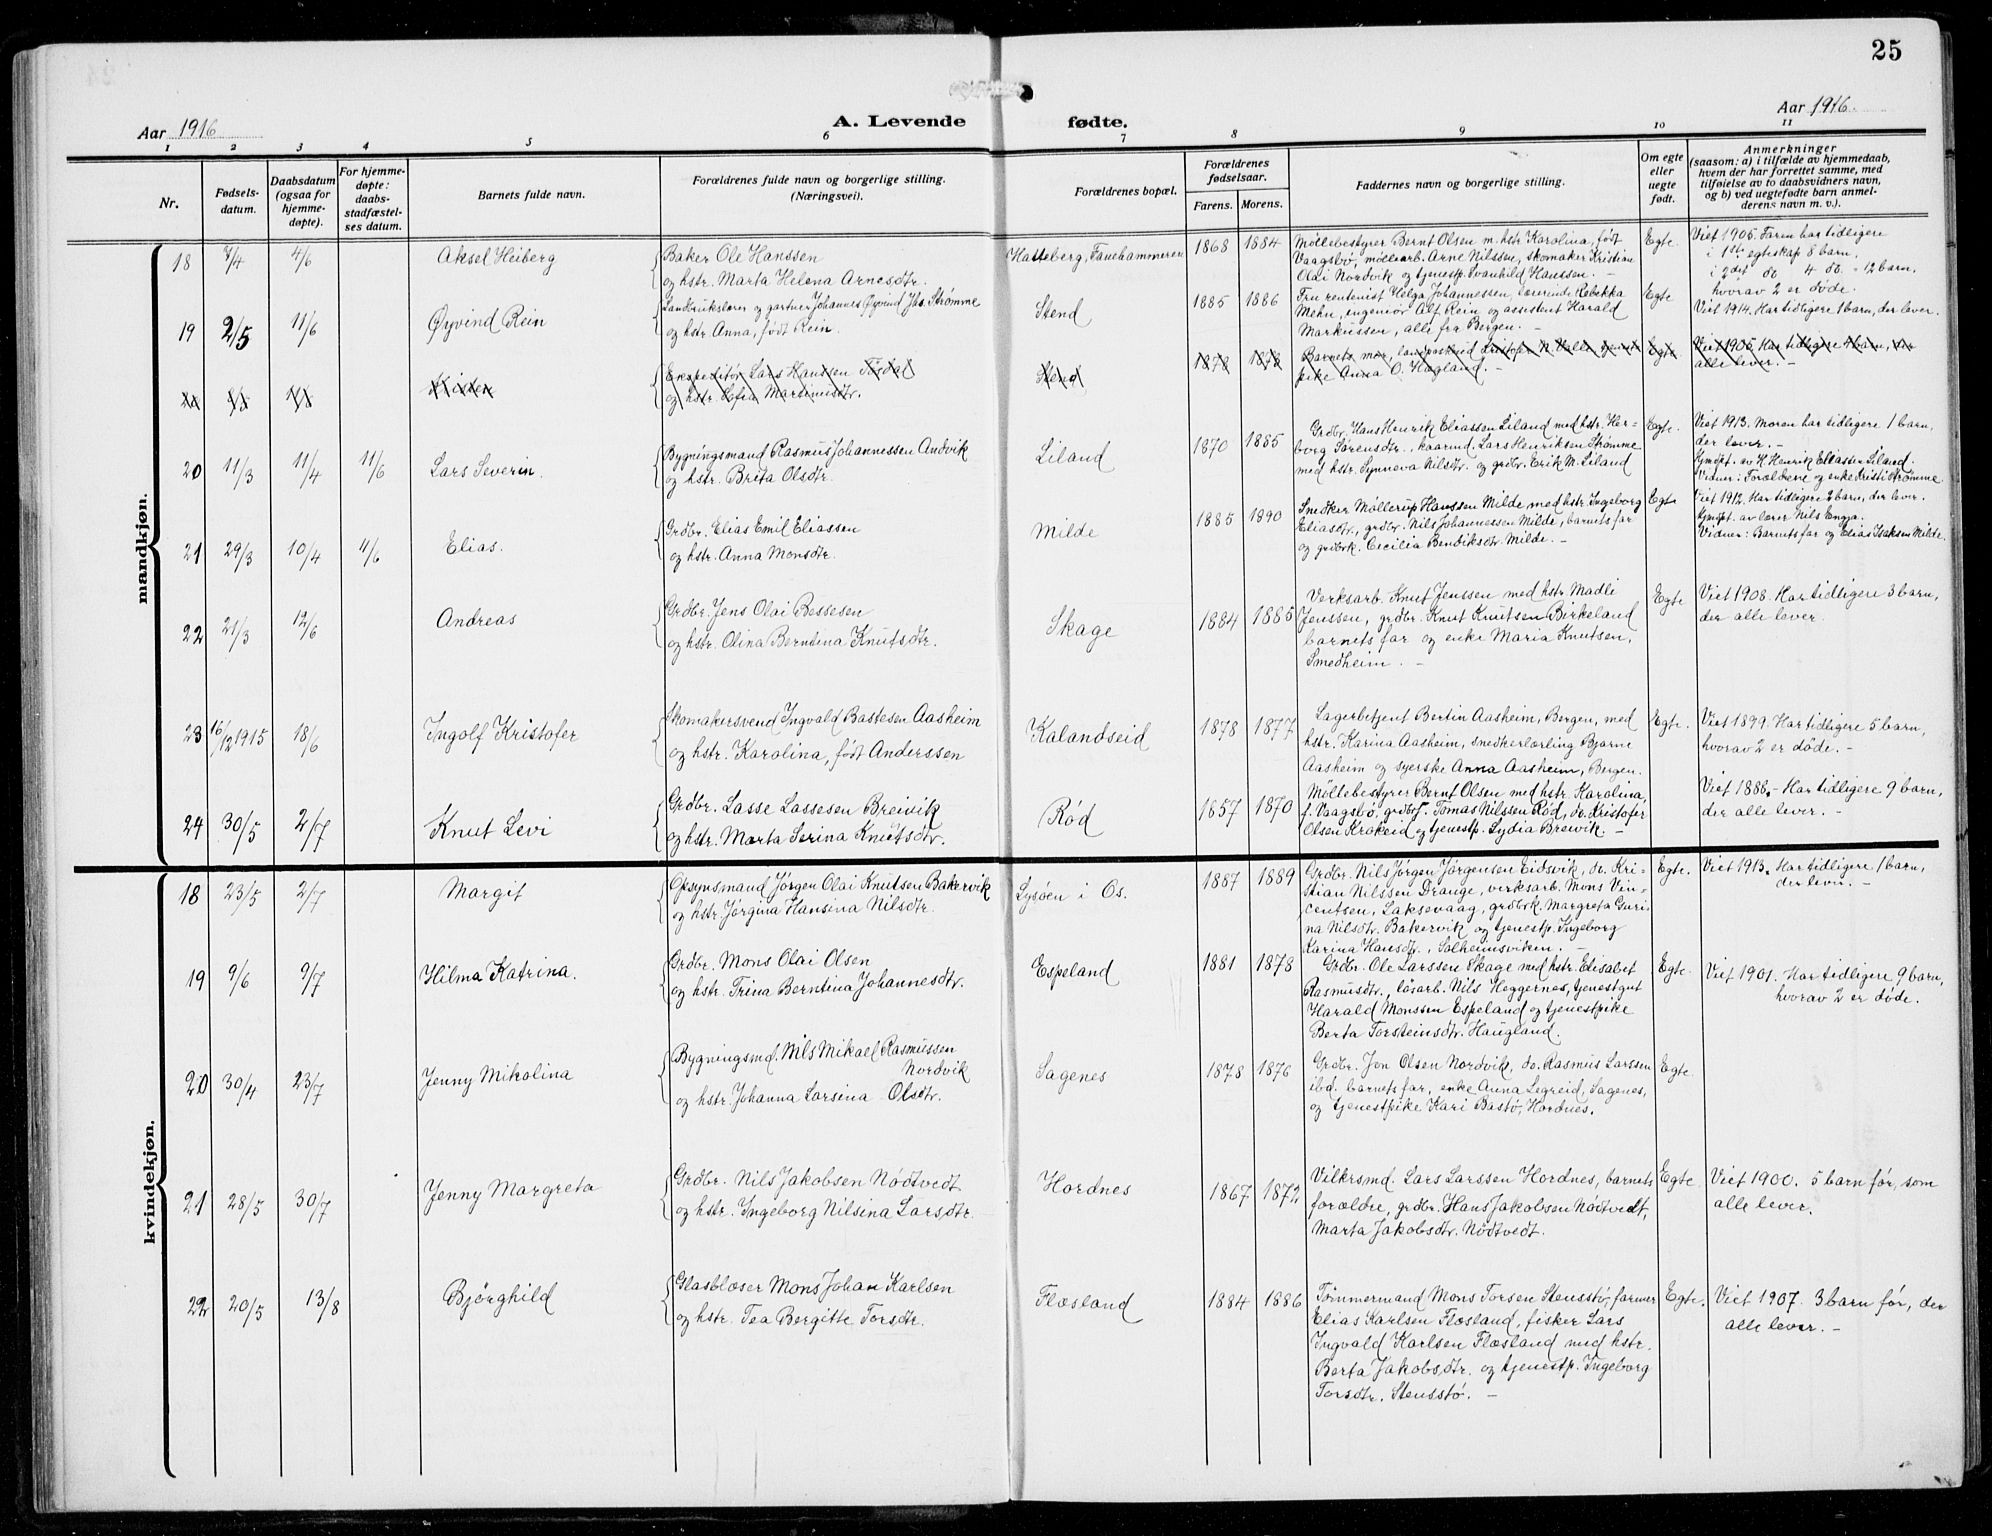 25
Aar 1916
A. Levende
fødte.
Aar 1916.
1 2 3 4 5 6 7 8 9 10 11
Nr.
Fødsels-
datum.
Daabsdatum
(ogsaa for
hjemme-
døpte).
For hjemme-
døpte:
daabs-
stadfæstel-
ses datum.
Barnets fulde navn.
Forældrenes fulde navn og borgerlige stilling.
(Næringsvei).
Forældrenes bopæl.
Forældrenes
fødselsaar.
Farens. Morens.
Faddernes navn og borgerlige stilling.
Om egte
eller
uegte
født.
Anmerkninger
(saasom: a) i tilfælde av hjemmedaab,
hvem der har forrettet samme, med
tilføielse av to daabsvidners navn,
og b) ved uegtefødte barn anmel-
derens navn m. v.).
mandkjøn.
18 7/4 4/6 Aksel Heiberg
Baker Ole Hanssen
og hstr. Marta Helena Arnesdtr.
Hatteberg, Fanehammeren 1868 1884
Møllebestyrer Bernt Olsen m. hstr. Karolina, født
Vaagsbø, møllearb. Arne Nilssen, skomaker Kristian
Olai Nordvik og tjenestp. Svanhild Hanssen. -
Egte.
Viet 1905. Faren har tidligere
i 1ste egteskap 8 barn,
i 2det do 4 do. = 12 barn,
hvorav 2 er døde.
19 2/5 11/6 Øyvind Rein
Landbrukslærer og gartner Johannes Øyvind Jhs. Strømme
og hstr. Anna, født Rein.
Stend 1885 1886
Fru rentenist Helga Johannessen, lærerinde Rebekka
Mehn, ingeniør Alf Rein og assistent Harald
Markussen, alle fra Bergen. -
Egte
Viet 1914. Har tidligere 1 barn, der lever.
Ekspeditør Lars Hanssen
og hstr. Sofia Martinusdtr.
Stend 1878 1878
pike Anna O. Hagland. -
Egte
Viet 1905. Har tidligere 4 barn,
alle lever. -
20 11/3 11/4 11/6 Lars Severin.
Bygningsmand Rasmus Johannessen Andvik
og hstr. Brita Olsdtr.
Liland 1870 1885
Grdbr. Hans Henrik Eliassen Liland med hstr. Her-
borg Sørensdtr., kaarmd. Lars Henriksen Strømme
med hstr. Synneva Nilsdtr. og grdbr. Erik N. Liland
Egte.
Viet 1913. Moren har tidligere 1 barn,
der lever. -
Hjmdpt. av H. Henrik Eliassen Liland.
Vidner: Forældrene og enke Kristi Strømme
21 29/3 10/4 11/6 Elias.
Grdbr. Elias Emil Eliassen
og hstr. Anna Monsdtr.
Milde 1885 1890
Snedker Møllerup Hanssen Milde med hstr. Ingeborg
Eliasdtr., grdbr. Nils Johannessen Milde, barnets far
og grdbrk. Cecilia Bendiksdtr. Milde. -
Egte
Viet 1912. Har tidligere 2 barn, der lever.
Hjmdpt. av lærer Nils Engja.
Vidner: Barnets far og Elias Isaksen Milde.
22 21/3 12/6 Andreas
Grdbr. Jens Olai Bessesen
og hstr. Olina Berntina Knutsdtr.
Skage 1884 1885
Verksarb. Knut Jenssen med hstr. Madli
Jenssen, grdbr. Knut Knutsen Birkeland
barnets far og enke Maria Knutsen,
Smedheim. -
Egte
Viet 1908. Har tidligere 3 barn,
der alle lever.
23 16/12 1915 18/6 Ingolf Kristofer
Skomakersvend Ingvald Bastesen Aasheim
og hstr. Karolina, født Anderssen
Kalandseid 1878 1877
Lagerbetjent Bertin Aasheim, Bergen, med
hstr. Karina Aasheim, snedkerlærling Bjarne
Aasheim og syerske Anna Aasheim, Bergen.
Egte.
Viet 1899. Har tidligere 5 barn,
hvorav 2 er døde. -
24 30/5 2/7 Knut Levi
Grdbr. Lasse Lassesen Breivik
og hstr. Marta Serina Knutsdtr.
Rød 1857 1870
Møllebestyrer Bernt Olsen med hstr. Karolina,
f. Vaagsbø, grdbr. Tomas Nilsen Rød, do. Kristofer
Olsen Krokeid og tjenestp. Lydia Breivik. -
Viet 1886. - Har tidligere 9 barn,
der alle lever. -
kvindekjøn.
18 23/5 2/7 Margit
Opsynsmand Jørgen Olai Knutsen Bakervik
og hstr. Jørgina Hansina Nilsdtr.
Lysøen i Os. 1887 1889
Grdbr. Nils Jørgen Jørgensen Eidsvik, do. Kri-
stian Nilssen Drange, verksarb. Mons Vin-
centsen, Laksevaag, grdbrk. Margreta Guri-
na Nilsdtr. Bakervik og tjenestp. Ingeborg
Karina Hansdtr., Solheimsviken. -
Egte.
Viet 1913. Har tidligere 1 barn,
der lever. -
19 9/6 9/7 Hilma Katrina.
Grdbr. Mons Olai Olsen
og hstr. Trina Berntina Johannesdtr.
Espeland 1881 1878
Grdbr. Ole Larssen Skage med hstr. Elisabet
Rasmusdtr., løsarb. Nils Heggernes, tjenestgut
Harald Monssen Espeland og tjenestpike
Berta Torsteinsdtr. Haugland.
Egte.
Viet 1901. Har tidligere 9 barn,
hvorav 2 er døde.
20 30/4 23/7 Jenny Mikolina
Bygningsmd. Nils Mikael Rasmussen
Nordvik
og hstr. Johanna Larsina Olsdtr.
Sagenes 1878 1876
Grdbr. Jon Olsen Nordvik, do. Rasmus Larssen
ibd. barnets far, enke Anna Legreid, Sagenes,
og tjenestpike Kari Bastø, Hordnes.
Egte.
21 28/5 30/7 Jenny Margreta
Grdbr. Nils Jakobsen Nødtvedt
og hstr. Ingeborg Nilsina Larsdtr.
Hordnes 1867 1872
Vilkrsmd. Lars Larssen Hordnes, barnets
forældre, grdbr. Hans Jakobsen Nødtvedt,
Marta Jakobsdtr. Nødtvedt.
Egte.
Viet 1900. 5 barn før, som
alle lever.
22 20/5 13/8 Bjørghild
Glasblæser Mons Johan Karlsen
og hstr. Tea Bergitte Torsdtr.
Flæsland 1884 1886
Tømmermand Mons Torsen Stensstø, farmer
Elias Karlsen Flæsland, fisker Lars
Ingvald Karlsen Flæsland med hstr.
Berta Jakobsdtr. og tjenestp. Ingeborg
Torsdtr. Stensstø. -
Egte.
Viet 1907. 3 barn før, der
alle lever. -